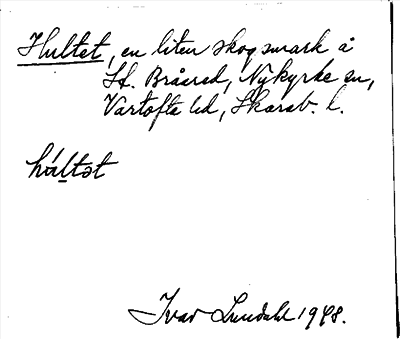 Hultet, en liten skogsmark å
St. Bråarød, Nykyrke sn,
Vartofta hd, Skarab. l.
húltət
Ivar Lundahl 1948.